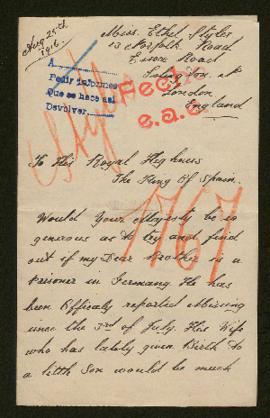 Miss. Ethel Styles
Aug 25th
1916.
13 Norfolk Road
Essex Road
Islington. N
London
England
A
Pedir informes
Que se hace así
Devolver
Hecho
e.a.e.
Styles
1767
To His Royal Highness
The King Of Spain.
Would Your Majesty be so
generous as to try and find
out if my Dear Brother is a
Prisoner in Germany He has
been Officialy reported Missing
since the 3rd of July. His Wife
who has lately given Birth to
a little Son would be much